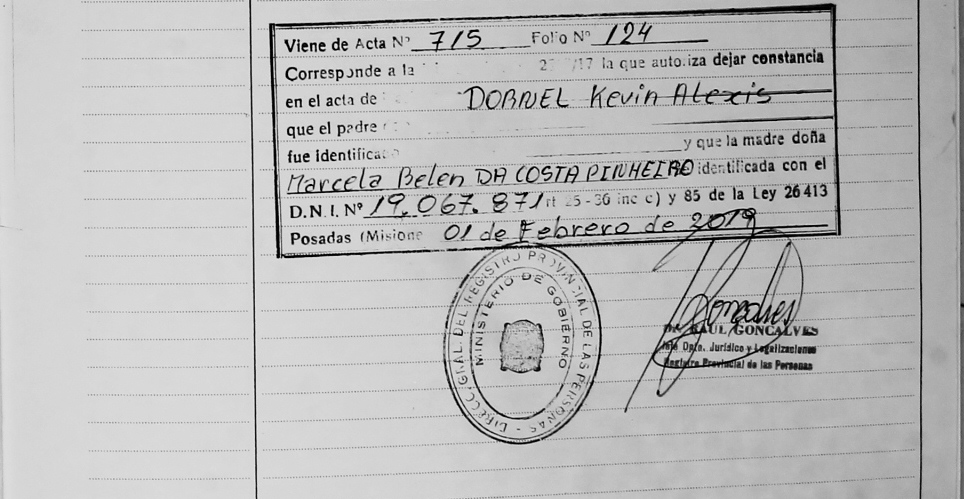 Viene de Acta Nº 715 Folio Nº 124
Corresponde a la /17 la que autoriza dejar constancia
en el acta de DORNEL Kevin Alexis
que el padre
fue identificado y que la madre doña
Marcela Belen DA COSTA PINHEIRO identificada con el
D.N.I. Nº 19.067.871 rt 25-36 inc c) y 85 de la Ley 26413
Posadas (Misione 01 de Febrero de 2019
DIRECC. GRAL. DEL REGISTRO PROVINCIAL DE LAS PERSONAS
MINISTERIO DE GOBIERNO
Goncalves
Dr. RAUL GONCALVES
Jefe Dpto. Jurídico y Legalizaciones
Registro Provincial de las Personas